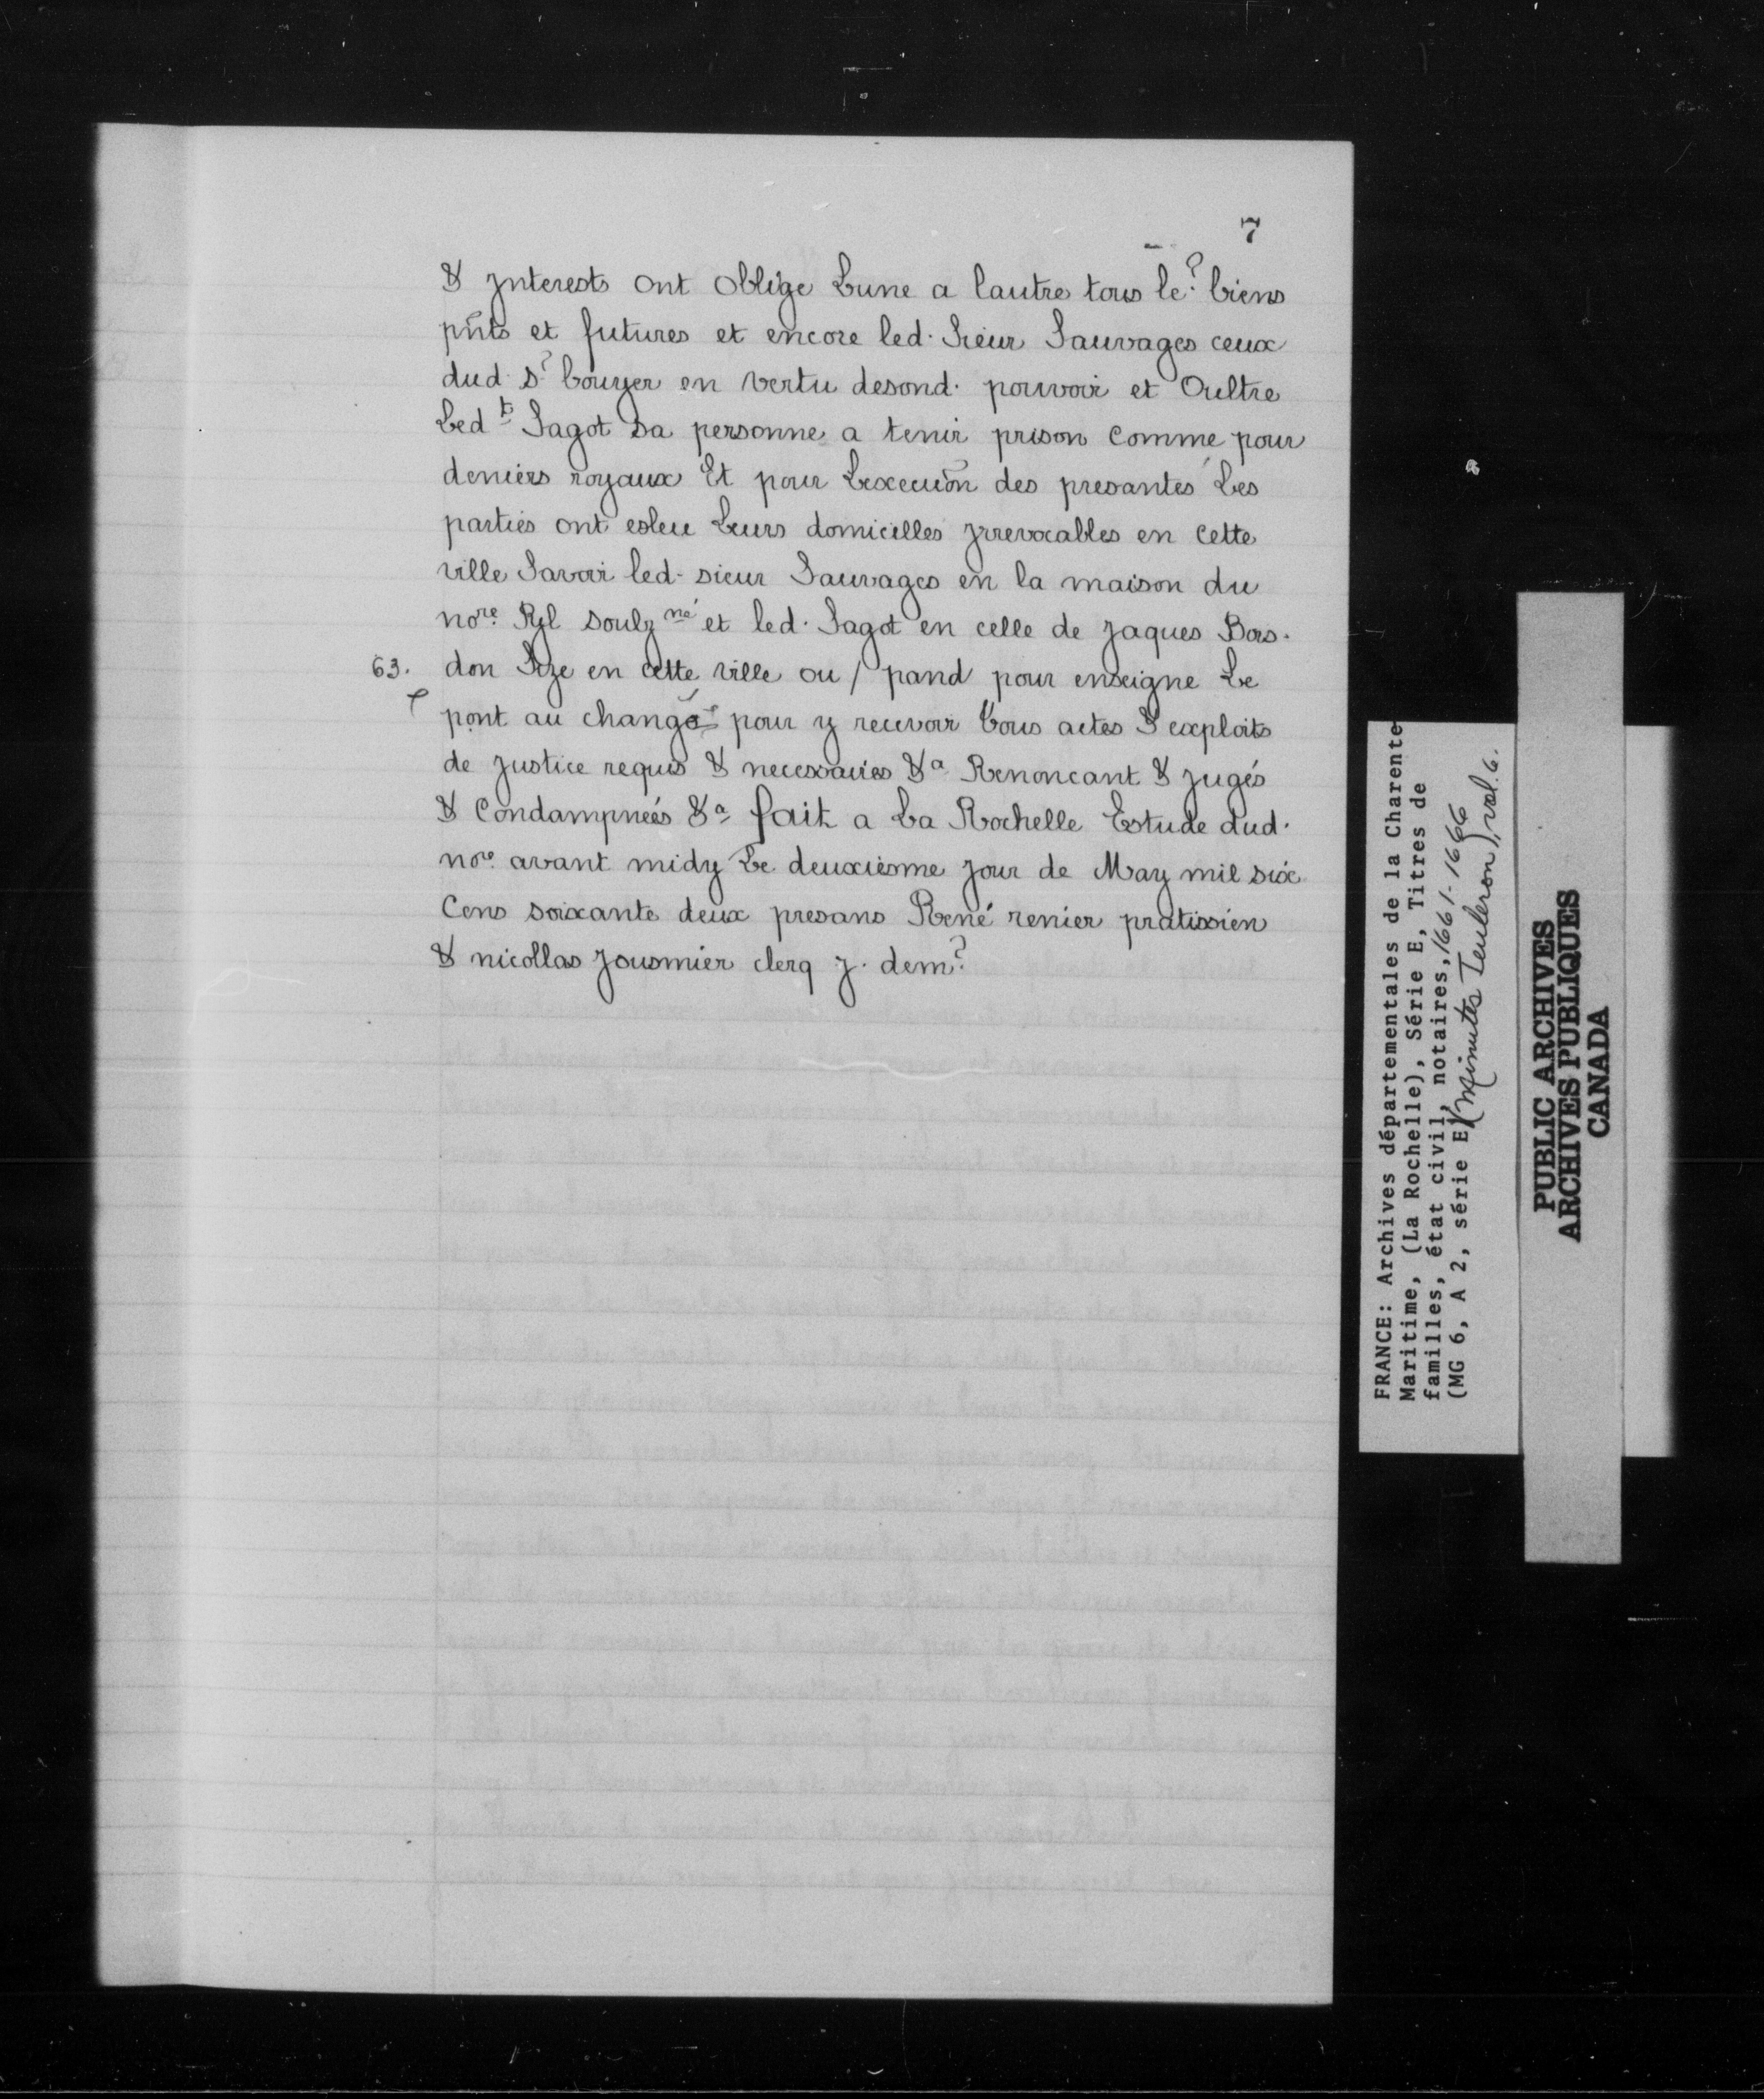 7
& Jnterests ont Oblige Lune a lautre tous le? biens
pñts et futures et encore led. Sieur Sauvages ceux
dud s? bouyer en vertu desond. pouvoir et Oultre
Led ts Sagot sa personne a tenir prison comme pour
deniers royaux Et pour Lexecuõn des presantes Les
parties ont esleu Leurs domicilles jrrevocables en cette
ville Savoir led. sieur Sauvages en la maison du
nore Ryl soulz né et led. Sagot en celle de Jaques Bois.
63. don Size en cette ville ou / pand pour enseigne Le
pont au change pour y recevoir tous actes & exploits
de Justice requis & necessaires &a Renoncant & Jugés
& Condampneés &a fait a La Rochelle Estude dud.
nore avant midy Le deuxiesme jour de May mil six
Cens soixante deux presans René renier pratissien
& nicollas Jousmier clerq J. dem?
FRANCE: Archives départementales de la Charente-
Maritime, (La Rochelle), Série E, Titres de
familles, état civil, notaires, 1661-1666
(MG 6, A 2, série E) (Minutes Teuleron), vol. 6.
PUBLIC ARCHIVES
ARCHIVES PUBLIQUES
CANADA